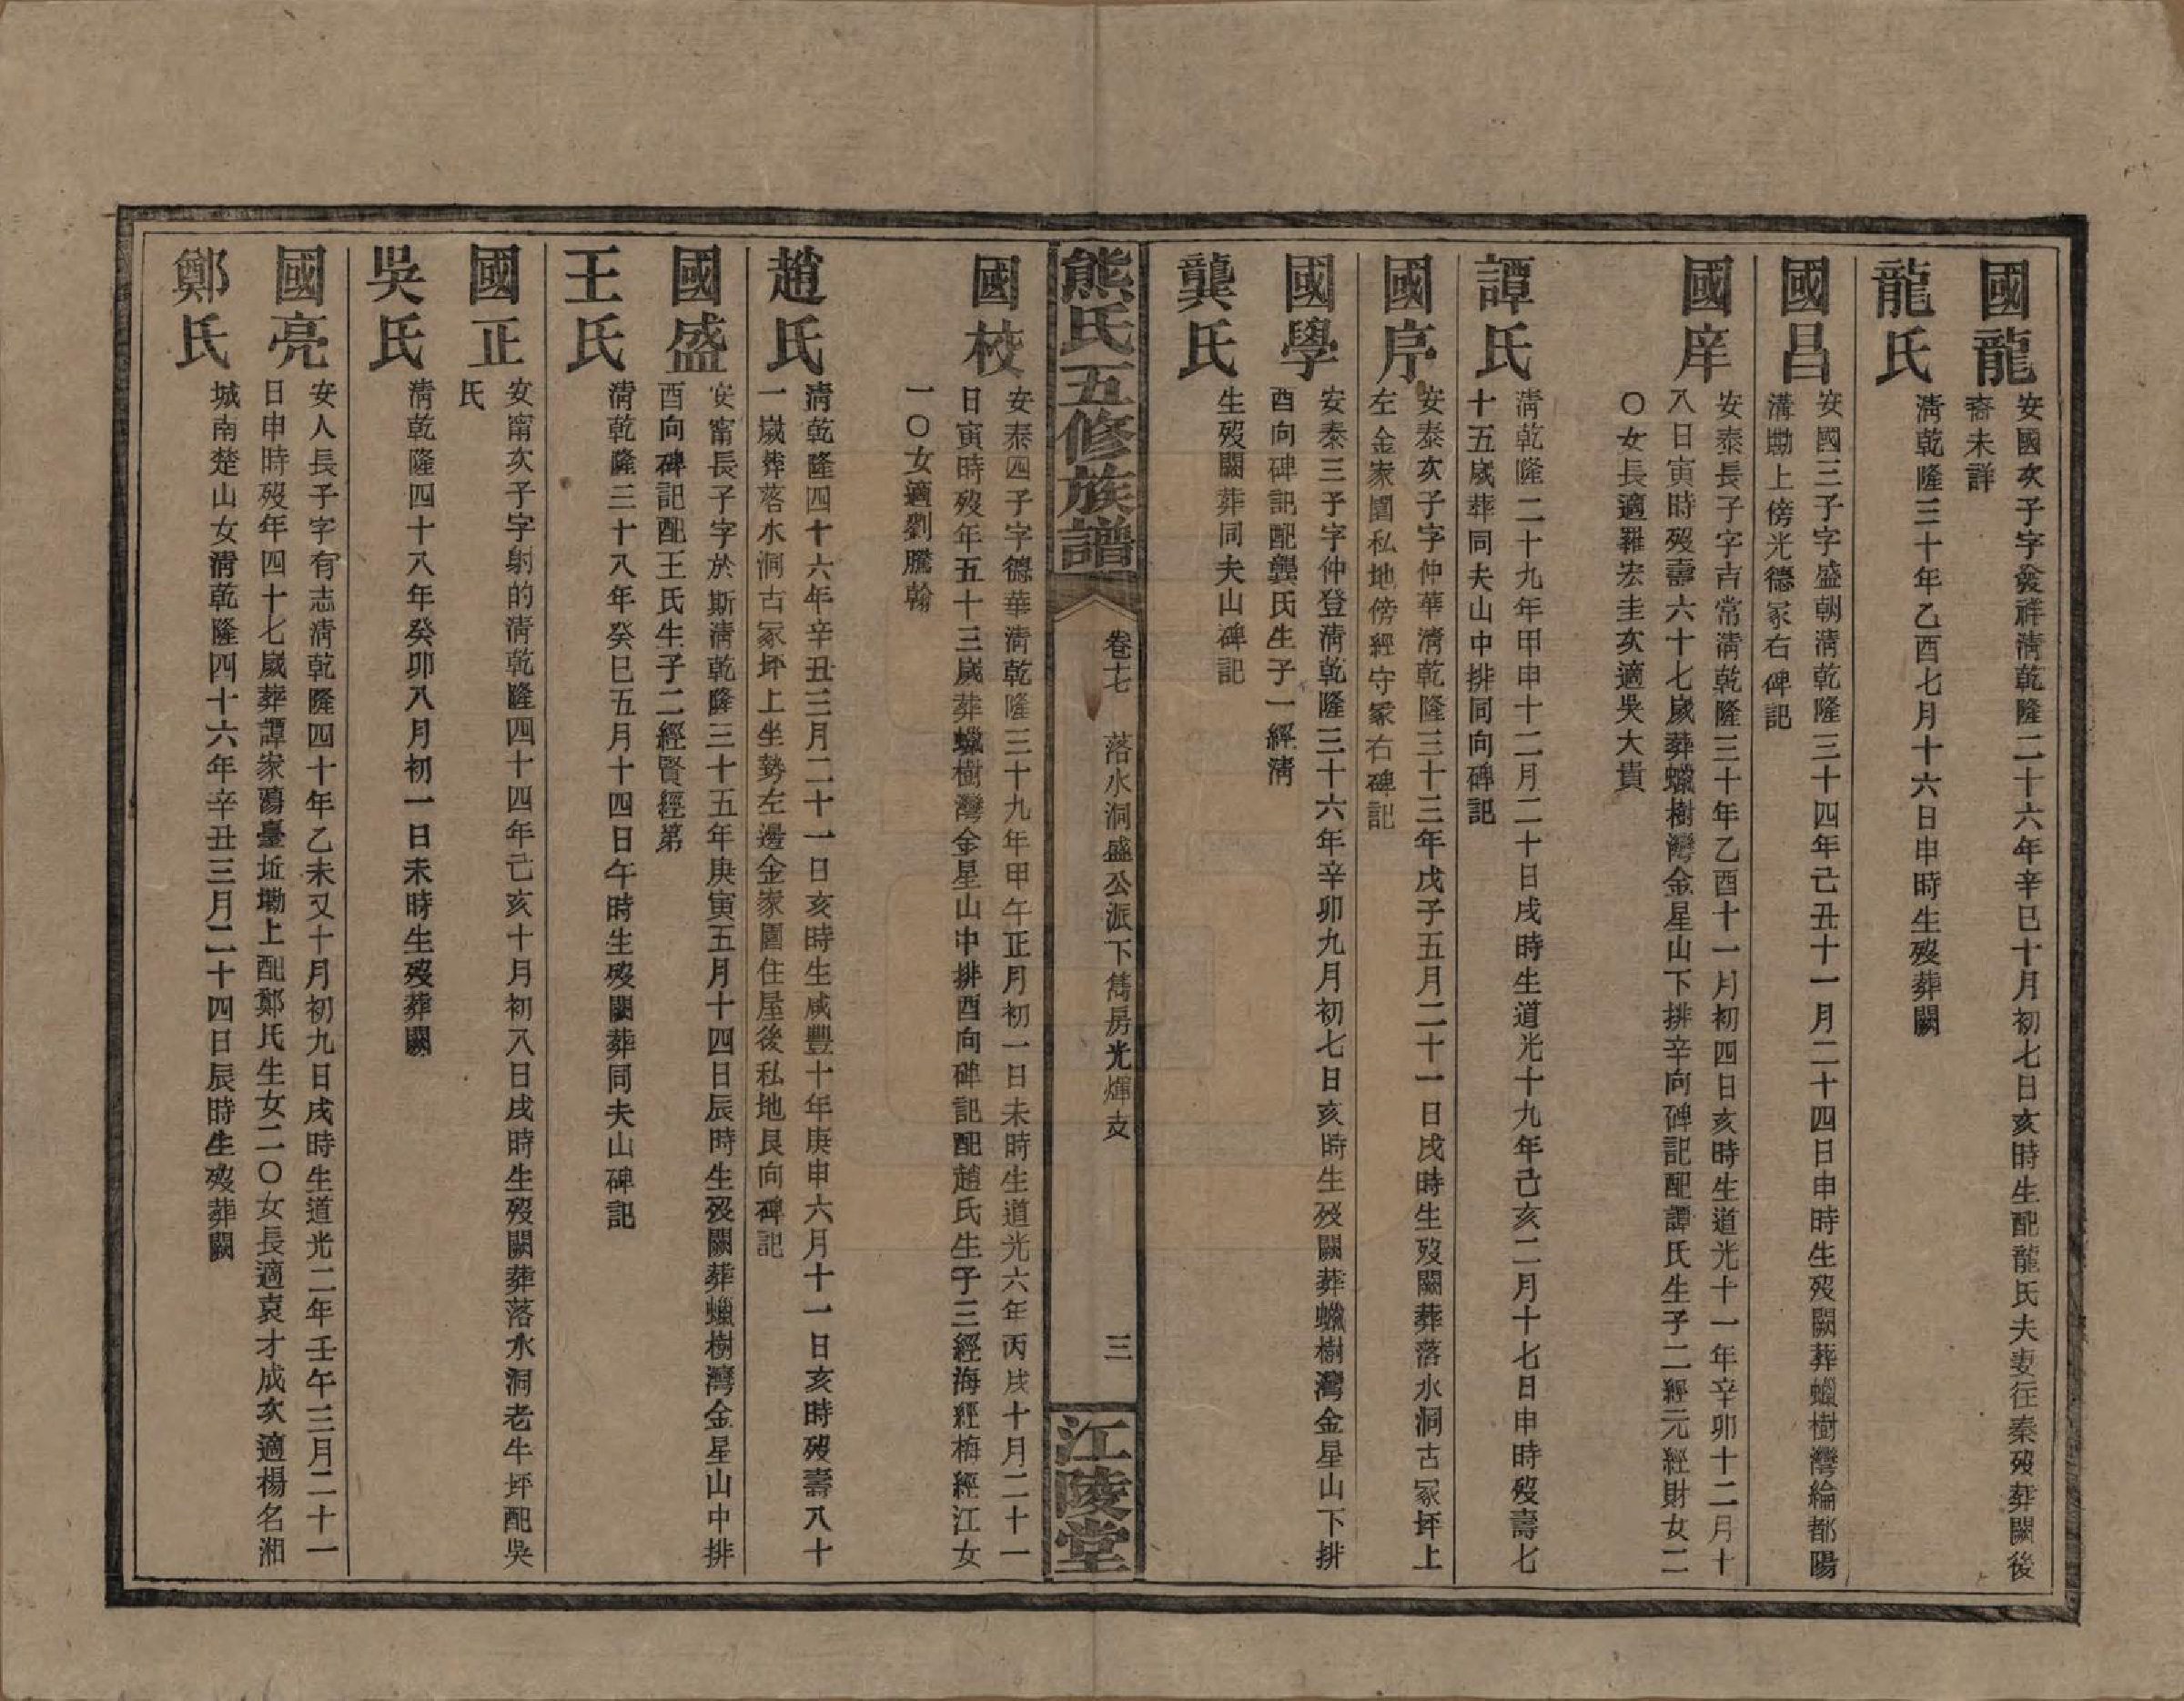 國龍
安國次子字發祥淸乾隆二十六年辛巳十月初七日亥時生配龍氏夫妻往秦歿葬闕後
裔未詳
龍氏
淸乾隆三十年乙酉七月十六日申時生歿葬闕
國昌
安國三子字盛朝淸乾隆三十四年己丑十一月二十四日申時生歿闕葬蠟樹灣綸都陽
溝勘上傍光德冢右碑記
國庠
安泰長子字吉常淸乾隆三十年乙酉十一月初四日亥時生道光十一年辛卯十二月十
八日寅時歿壽六十七歲葬蠟樹灣金星山下排辛向碑記配譚氏生子二經元經財女二
〇女長適羅宏圭次適吳大貴
譚氏
淸乾隆二十九年甲申十二月二十日戌時生道光十九年己亥二月十七日申時歿壽七
十五歲葬同夫山中排同向碑記
國序
安泰次子字仲華淸乾隆三十三年戊子五月二十一日戌時生歿闕葬落水洞古冢坪上
左金家園私地傍經守冢右碑記
國學
安泰三子字仲登淸乾隆三十六年辛卯九月初七日亥時生歿闕葬蠟樹灣金星山下排
酉向碑記配龔氏生子一經淸
龔氏
生歿闕葬同夫山碑記
熊氏五修族譜
卷十七
落水洞盛公派下雋房光煇支
三
江陵堂
國校
安泰四子字德華淸乾隆三十九年甲午正月初一日未時生道光六年丙戌十月二十一
日寅時歿年五十三歲葬蠟樹灣金星山中排酉向碑記配趙氏生子三經海經梅經江女
一〇女適劉騰翰
趙氏
淸乾隆四十六年辛丑三月二十一日亥時生咸豐十年庚申六月十一日亥時歿壽八十
一歲葬落水洞古冢坪上坐勢左邊金家園住屋後私地艮向碑記
國盛
安甯長子字於斯淸乾隆三十五年庚寅五月十四日辰時生歿闕葬蠟樹灣金星山中排
酉向碑記配王氏生子二經賢經第
王氏
淸乾隆三十八年癸巳五月十四日午時生歿闕葬同夫山碑記
國正
安甯次子字射的淸乾隆四十四年己亥十月初八日戌時生歿闕葬落水洞老牛坪配吳
氏
吳氏
淸乾隆四十八年癸卯八月初一日未時生歿葬闕
國亮
安人長子字有志淸乾隆四十年乙未又十月初九日戌時生道光二年壬午三月二十一
日申時歿年四十七歲葬譚家蕩臺坵墈上配鄭氏生女二〇女長適袁才成次適楊名湘
鄭氏
城南楚山女淸乾隆四十六年辛丑三月二十四日辰時生歿葬闕